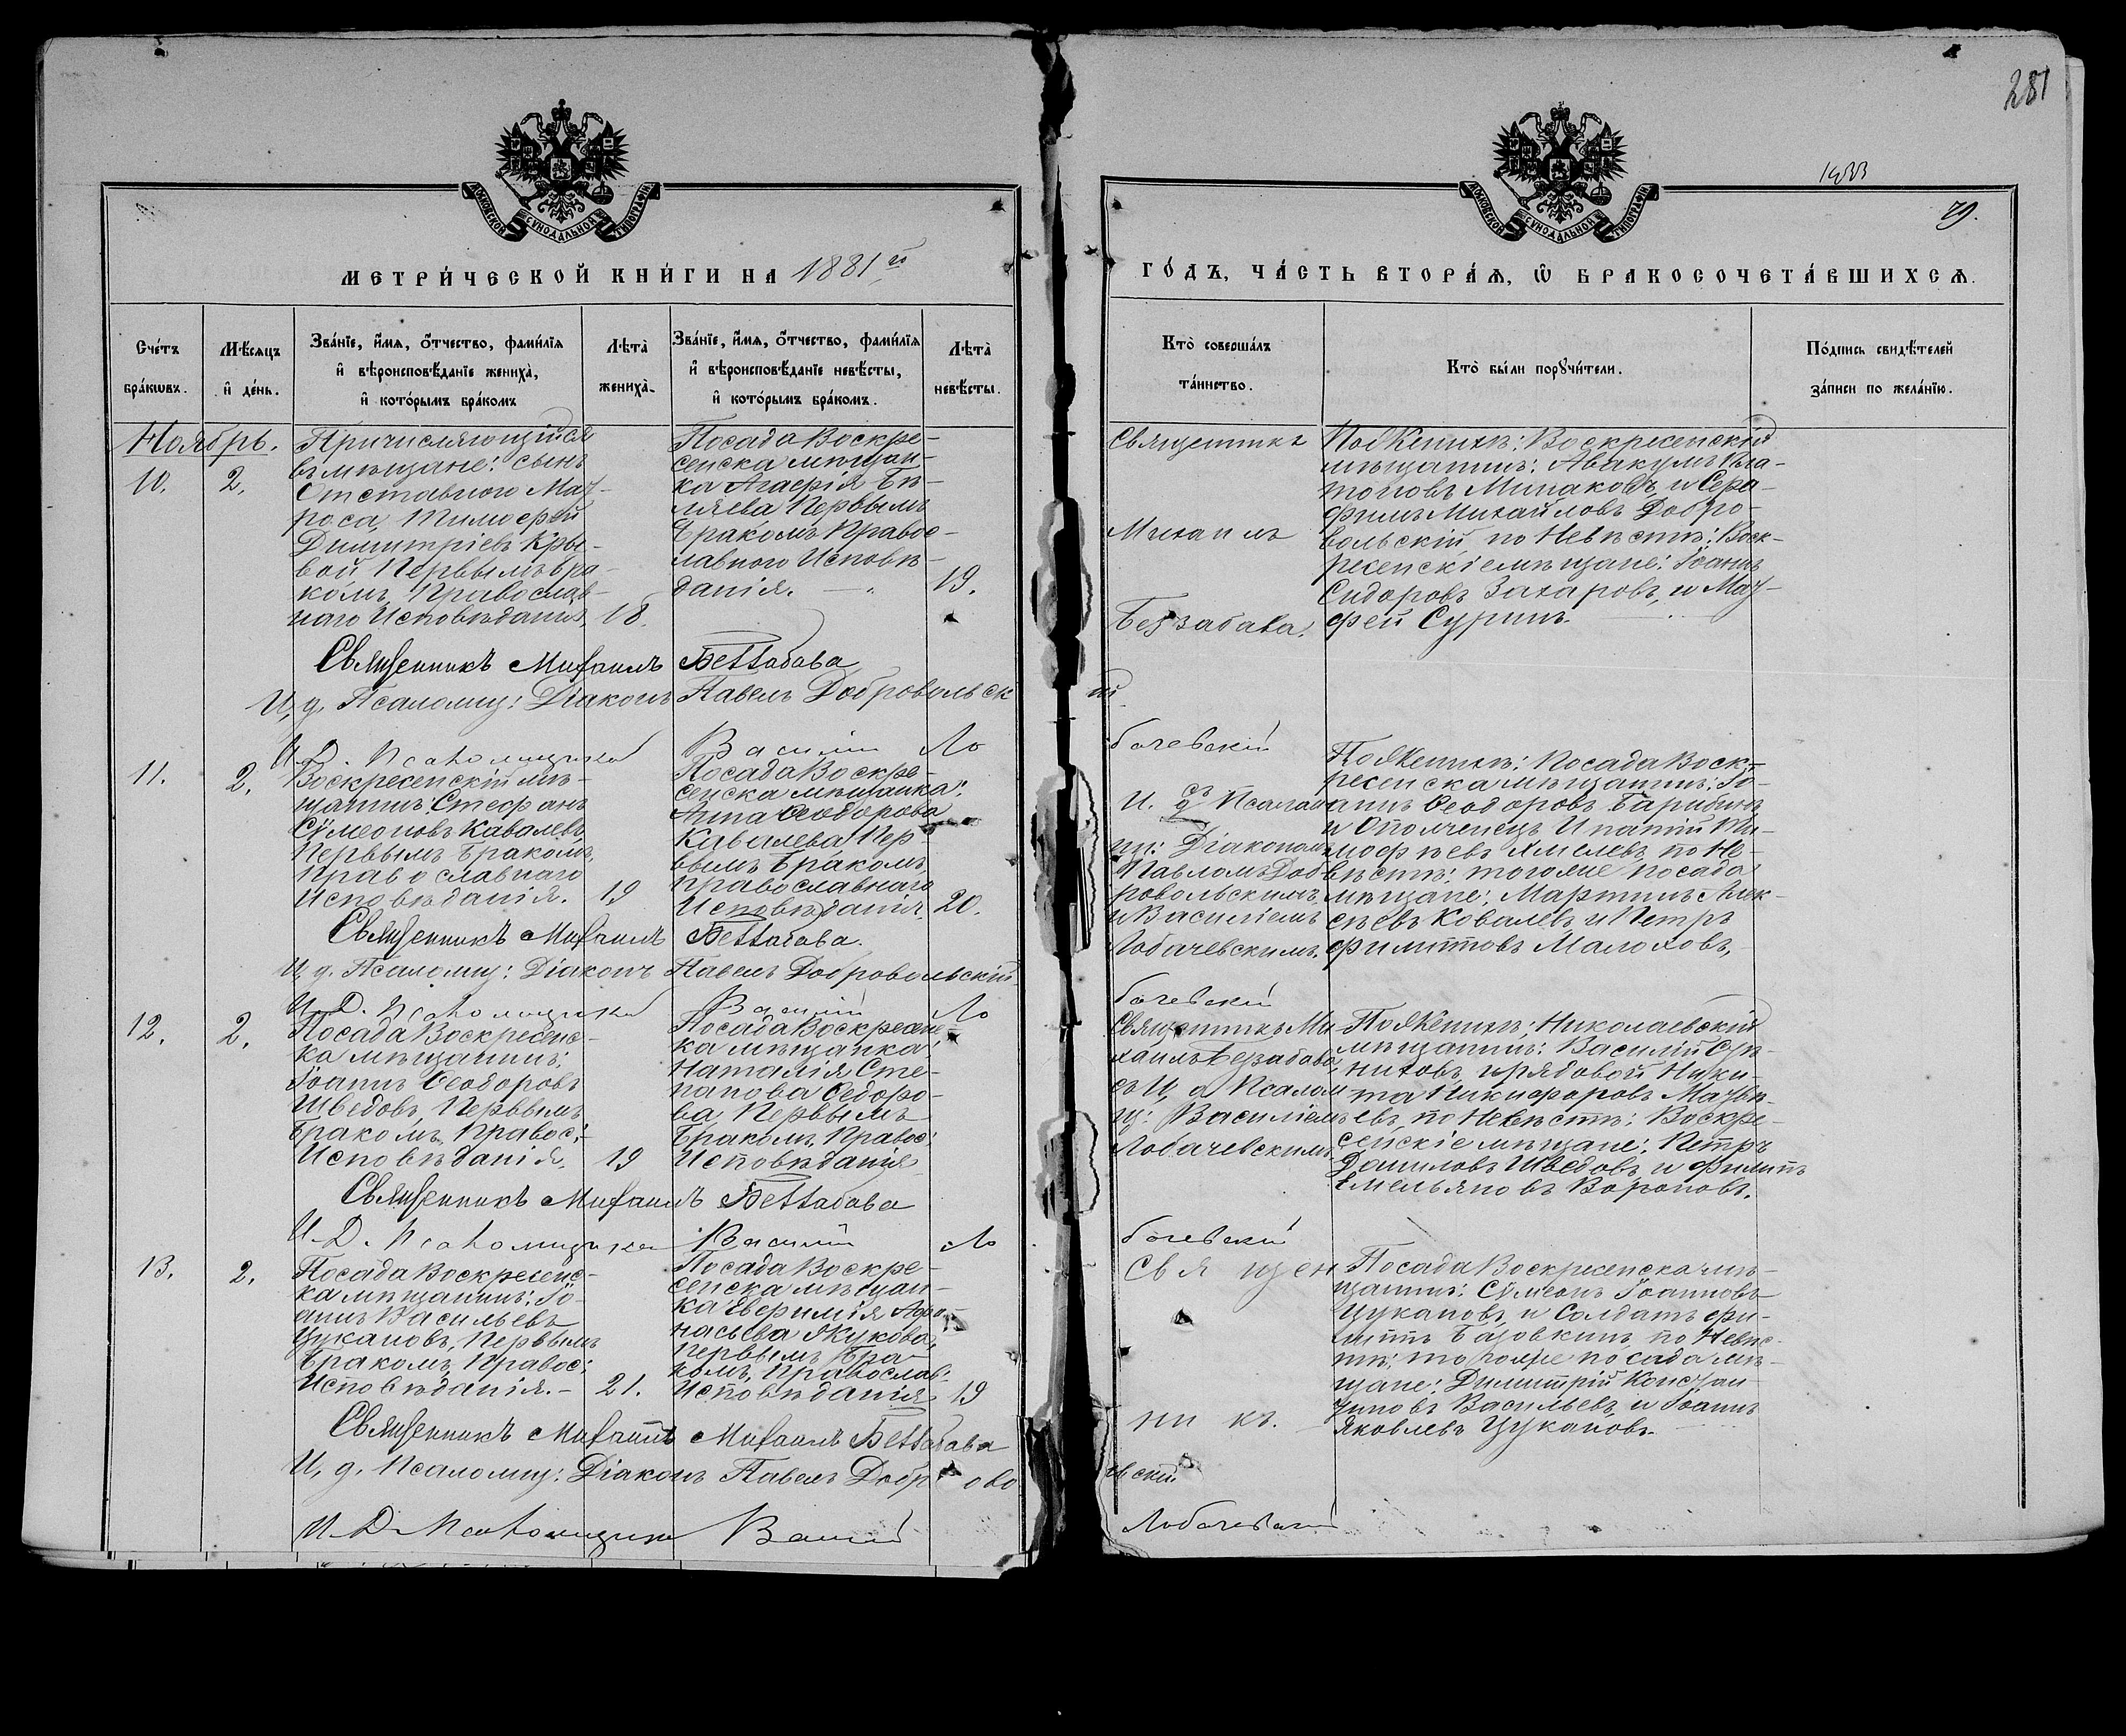 281
1433
79.
МОСКОВСКОЙ СѴНОДАЛЬНОЙ ТИПОГРАФІИ
МОСКОВСКОЙ СѴНОДАЛЬНОЙ ТИПОГРАФІИ
МЕТРИ́ЧЕСКОЙ КНИ́ГИ НА 1881й
ГО́ДЪ, ЧА́СТЬ ВТОРА́Ѧ, Ѡ҆ БРАКОСОЧЕТА́ВШИХСѦ.
Сче́тъ бра́кѡвъ.
Мѣ́сѧцъ и҆ де́нь.
Зва́нїе, и҆́мѧ, ѻ҆́тчество, фами́лїѧ
и҆ вѣроисповѣ́данїе жениха̀,
и҆ кото́рымъ бра́комъ
Лѣта̀ жениха̀.
Зва́нїе, и҆́мѧ, ѻ҆́тчество, фами́лїѧ
и҆ вѣроисповѣ́данїе невѣ́сты,
и҆ кото́рымъ бра́комъ.
Лѣта̀ невѣ́сты.
Кто̀ соверша́лъ
та́инство.
Кто̀ бы́ли порꙋчи́тели.
По́дпись свидѣ́телей
за́писи по жела́нїю.
Ноябрь.
10.
2.
Причисляющійся
въ мѣщане: сынъ
Отставного Мат-
роса Тимофей
Димитріевъ Кры-
вой Первымъ бра-
комъ, Православ-
наго Исповѣданія,
18.
Посада Воскре-
сенска мѣщан-
ка Агафія Бѣ-
ляева Первымъ
Бракомъ Правос-
лавного Исповѣ-
данія.
19.
Священникъ
Михаилъ
Беззабава.
По Женихѣ: Воскресенскій
мѣщанинъ: Авакумъ Пла-
тоновъ Минаковъ, и Сера-
фимъ Михайловъ Добро-
вольскій, по Невѣстѣ: Воск-
ресенскіе мѣщане: Іоаннъ
Сидоровъ Захаровъ, и Мат-
фей Суринъ.
Священникъ Михаилъ Беззабава
И, д. Псаломщ: Діаконъ Павелъ Добровольск
ій
И. Д. Псаломщика Василій Ло
бачевскій
11.
2.
Воскресенскій мѣ-
щанинъ: Стефанъ
Сѵмеоновъ Кавалевъ
Первымъ Бракомъ,
Православнаго
Исповѣданія.
19
Посада Воскре-
сенска мѣщанка:
Анна Ѳеодорова
Кавалева Пер-
вымъ Бракомъ,
православнаго
Исповѣданія.
20.
съ
И. д Псалом
щ: Діакономъ
Павломъ Доб
ровольскимъ
и Василіемъ
Лобачевскимъ.
По Женихѣ: Посада Воск-
ресенска мѣщанинъ: Іо-
аннъ Ѳеодоровъ Барибинъ
и Ополченецъ Ипатій Ти-
мофѣевъ Хмелевъ, по Не-
вѣстѣ: тогоже посада
мѣщане: Мартинъ Алек-
сѣевъ Ковалевъ и Петръ
Филипповъ Малоховъ.
Священникъ Михаилъ Беззабава.
И, д. Псаломщ: Діаконъ Павелъ Добровольскій
И. Д. Псаломщика Василій Ло
бачевскій
12.
2.
Посада Воскресенс-
ка мѣщанинъ:
Іоаннъ Ѳеодоровъ
Шведовъ, Первымъ
Бракомъ, Правос:
Исповѣданія,
19
Посада Воскресенс-
ка мѣщанка:
Наталія Сте-
панова Ѳедоро-
ва, Первымъ
Бракомъ, Правос:
Исповѣданія
Священникъ Ми
хаилъ Беззабава
съ И, д Псалом
щ: Василіемъ
Лобачевскимъ
По Женихѣ: Николаевскій
мѣщанинъ: Василій
и рядовой Ники-
та Никифоровъ Матвѣ-
евъ, по Невѣстѣ: Воскре-
сенскіе мѣщане: Петръ
Даниловъ Шведовъ, и Филиппъ
Емельяновъ Вороновъ.
Священникъ Михаилъ Беззабава
И. Д. Псаломщика Василій Ло
бачевскій
13.
2.
Посада Воскресенс-
ка мѣщанинъ: Іо-
аннъ Васильевъ
Цукановъ, Первымъ
Бракомъ, Правос:
Исповѣданія.
21.
Посада Воскре-
сенска мѣщан-
ка Евфимія Афа-
насьева Жукова,
Первымъ Бра-
комъ, Православ:
Исповѣданія
19
Священ
никъ.
Посада Воскресенска мѣ-
щанинъ: Сѵмеонъ Іоанновъ
Цукановъ, и Солдатъ Фи-
липпъ по Невѣс-
тѣ: тогоже посада мѣ-
щане: Димитрій Констан-
тиновъ Васильевъ, и Іоаннъ
Яковлевъ Цукановъ.
Священникъ Михаилъ Михаилъ Беззабава
И, д. Псаломщ: Діаконъ Павелъ Доброво
вскій
И Д Псаломщика Василій
Лобачевскій